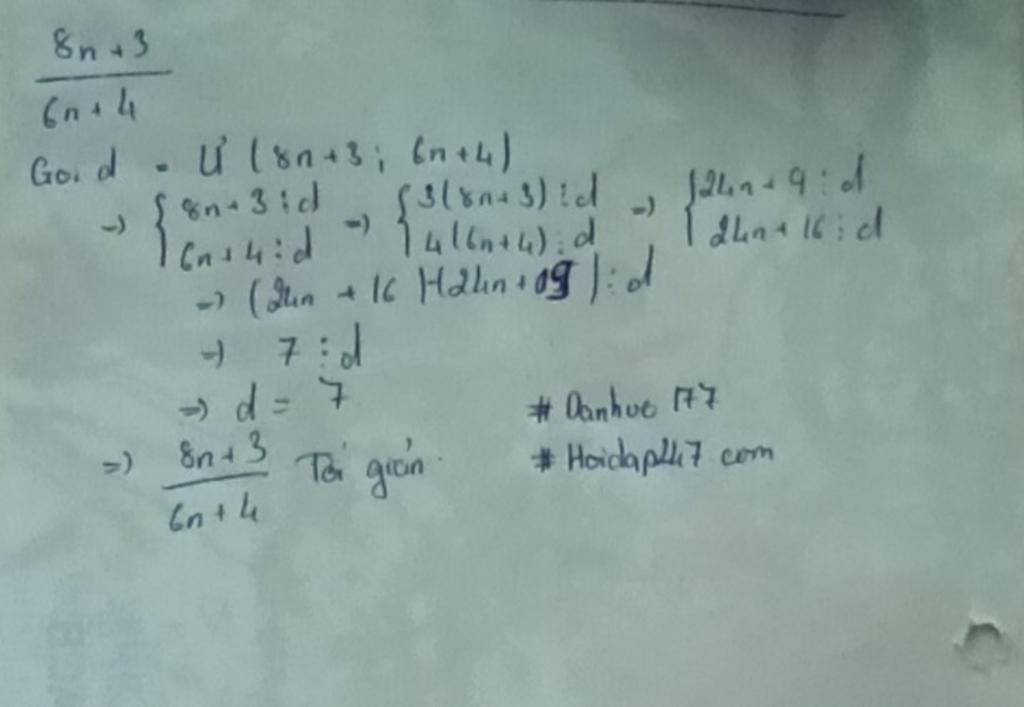 8n+3
6n+4
Gọi d = Ư (8n+3; 6n+4)
=> { 8n+3 ⋮ d => { 3(8n+3) ⋮ d => { 24n+9 ⋮ d
6n+4 ⋮ d 4(6n+4) ⋮ d 24n+16 ⋮ d
=> (24n+16)-(24n+09) ⋮ d
=> 7 ⋮ d
=> d = 7 # Danhvo 177
=> 8n+3 Tối giản. # Hoidap247.com
6n+4